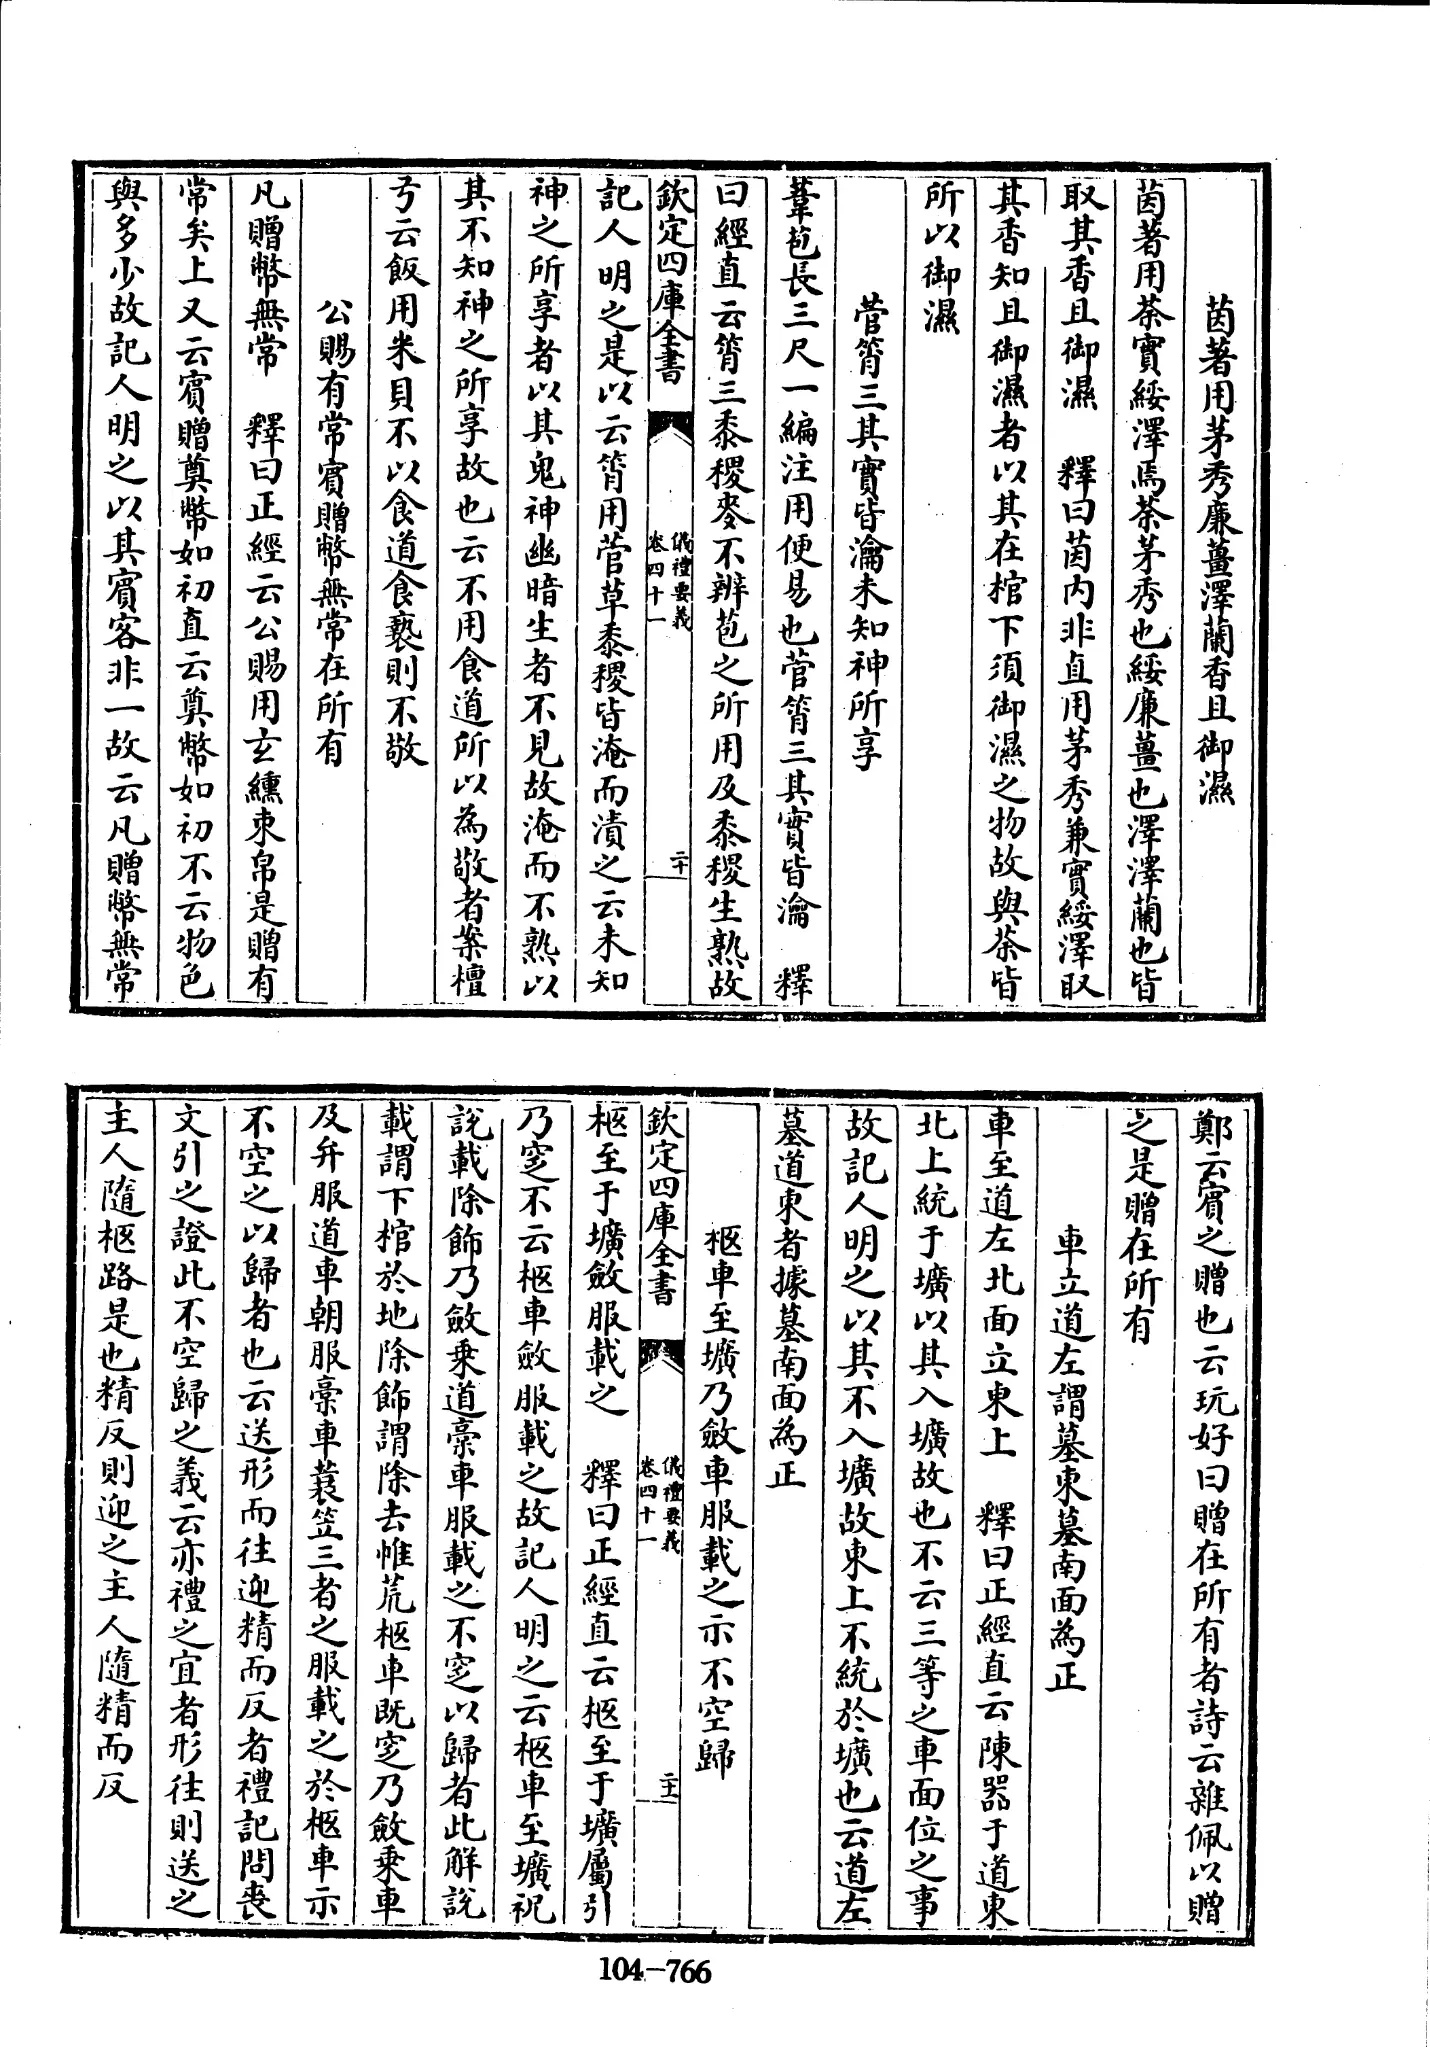 茵著用茅秀廉薑澤蘭香且御濕
茵著用荼實綏澤焉荼茅秀也綏廉薑也澤澤蘭也皆
取其香且御濕　釋曰茵内非直用茅秀兼實綏澤取
其香知且御濕者以其在棺下須御濕之物故與荼皆
所以御濕
菅筲三其實皆瀹未知神所享
葦苞長三尺一編注用便易也菅筲三其實皆瀹　釋
曰經直云筲三黍稷麥不辨苞之所用及黍稷生熟故
欽定四庫全書　儀禮要義卷四十一　二十
記人明之是以云筲用菅草黍稷皆淹而漬之云未知
神之所享者以其鬼神幽暗生者不見故淹而不熟以
其不知神之所享故也云不用食道所以為敬者案檀
弓云飯用米貝不以食道食褻則不敬
公賜有常賓贈幣無常在所有
凡贈幣無常　釋曰正經云公賜用玄纁束帛是贈有
常矣上又云賓贈奠幣如初直云奠幣如初不云物色
與多少故記人明之以其賓客非一故云凡贈幣無常
鄭云賓之贈也云玩好曰贈在所有者詩云雜佩以贈
之是贈在所有
車立道左謂墓東墓南面為正
車至道左北面立東上　釋曰正經直云陳器于道東
北上統于壙以其入壙故也不云三等之車面位之事
故記人明之以其不入壙故東上不統於壙也云道左
墓道東者據墓南面為正
柩車至壙乃斂車服載之示不空歸
欽定四庫全書　儀禮要義卷四十一　二十一
柩至于壙斂服載之　釋曰正經直云柩至于壙屬引
乃窆不云柩車斂服載之故記人明之云柩車至壙祝
說載除飾乃斂乗道槀車服載之不窆以歸者此解說
載謂下棺於地除飾謂除去帷荒柩車既窆乃斂乗車
及弁服道車朝服槀車蓑笠三者之服載之於柩車示
不空之以歸者也云送形而往迎精而反者禮記問喪
文引之證此不空歸之義云亦禮之宜者形往則送之
主人隨柩路是也精反則迎之主人隨精而反
104-766